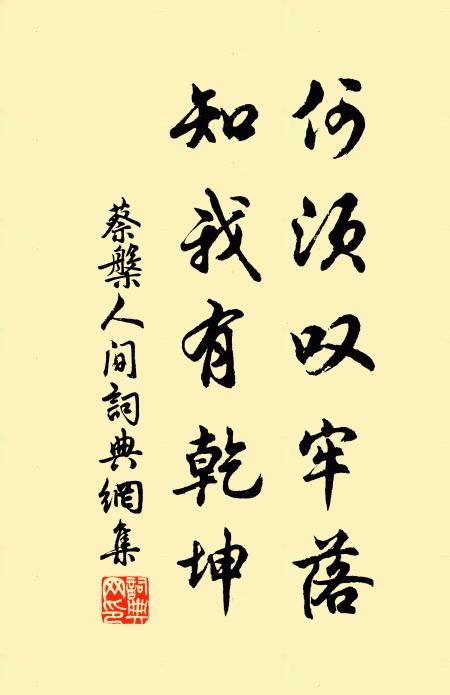 何须叹牢落
知我有乾坤
蔡槃人间詞典網集
詞典
网印